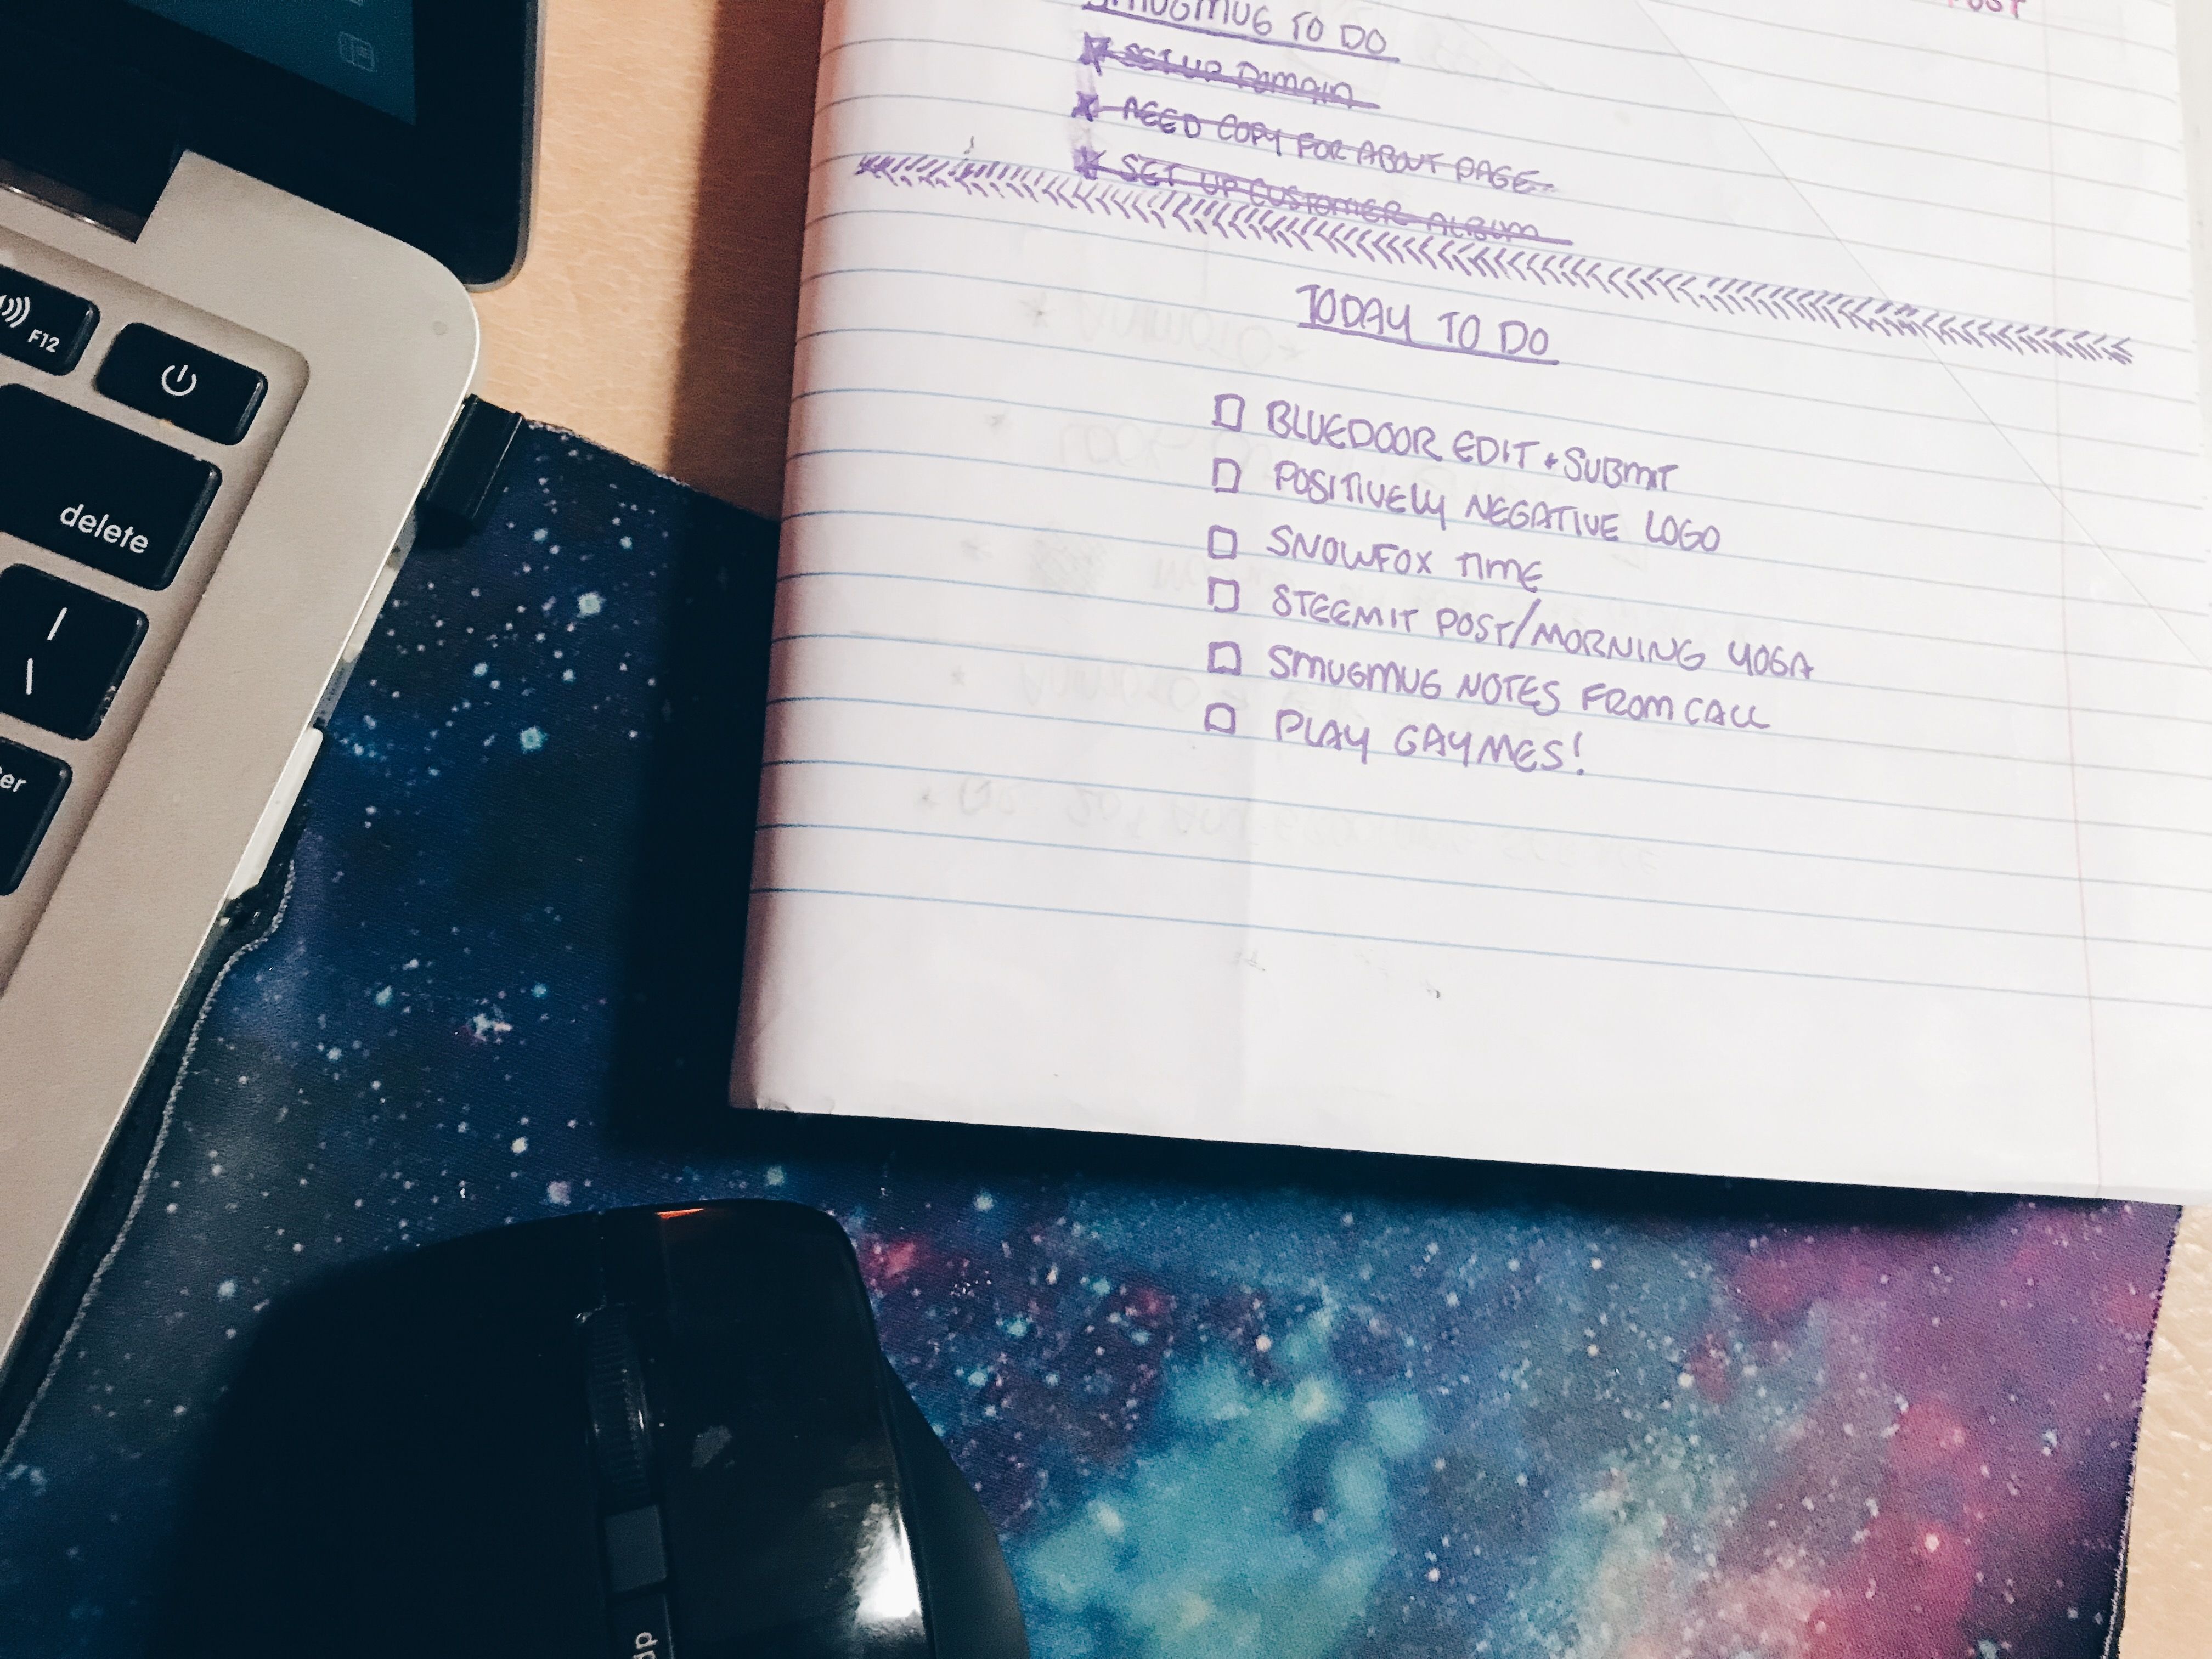 SMUGMUG TO DO
SET UP DOMAIN
NEED COPY FOR ABOUT PAGE
SET UP CUSTOMER ALBUM
TODAY TO DO
BLUEDOOR EDIT + SUBMIT
POSITIVELY NEGATIVE LOGO
SNOWFOX TIME
STEEMIT POST/MORNING YOGA
SMUGMUG NOTES FROM CALL
PLAY GAYMES!
F12
delete
|
\